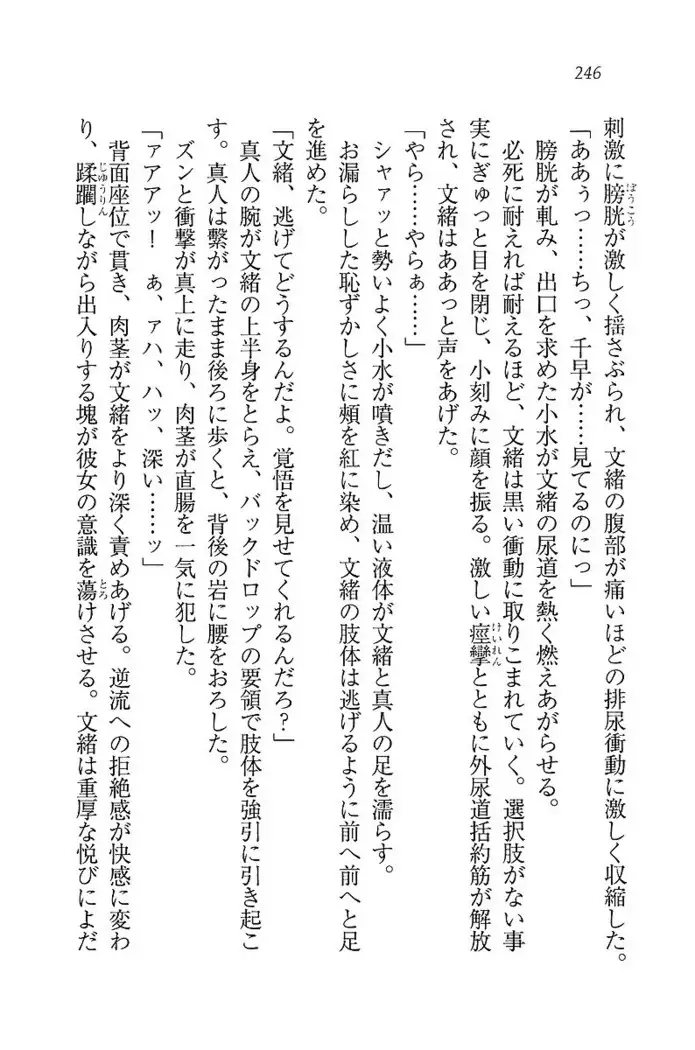 246
刺激に膀胱が激しく揺さぶられ、文緒の腹部が痛いほどの排尿衝動に激しく収縮した。
「ああぅっ……ちっ、千早が……見てるのにっ」
膀胱が軋み、出口を求めた小水が文緒の尿道を熱く燃えあがらせる。
必死に耐えれば耐えるほど、文緒は黒い衝動に取りこまれていく。選択肢がない事
実にぎゅっと目を閉じ、小刻みに顔を振る。激しい痙攣とともに外尿道括約筋が解放
され、文緒はああっと声をあげた。
「やら……やらぁ……」
シャァッと勢いよく小水が噴きだし、温い液体が文緒と真人の足を濡らす。
お漏らしした恥ずかしさに頬を紅に染め、文緒の肢体は逃げるように前へ前へと足
を進めた。
「文緒、逃げてどうするんだよ。覚悟を見せてくれるんだろ?」
真人の腕が文緒の上半身をとらえ、バックドロップの要領で肢体を強引に引き起こ
す。真人は繋がったまま後ろに歩くと、背後の岩に腰をおろした。
ズンと衝撃が真上に走り、肉茎が直腸を一気に犯した。
「ァアアッ! ぁ、ァハ、ハッ、深い……ッ」
背面座位で貫き、肉茎が文緒をより深く責めあげる。逆流への拒絶感が快感に変わ
り、蹂躙しながら出入りする塊が彼女の意識を蕩けさせる。文緒は重厚な悦びによだ